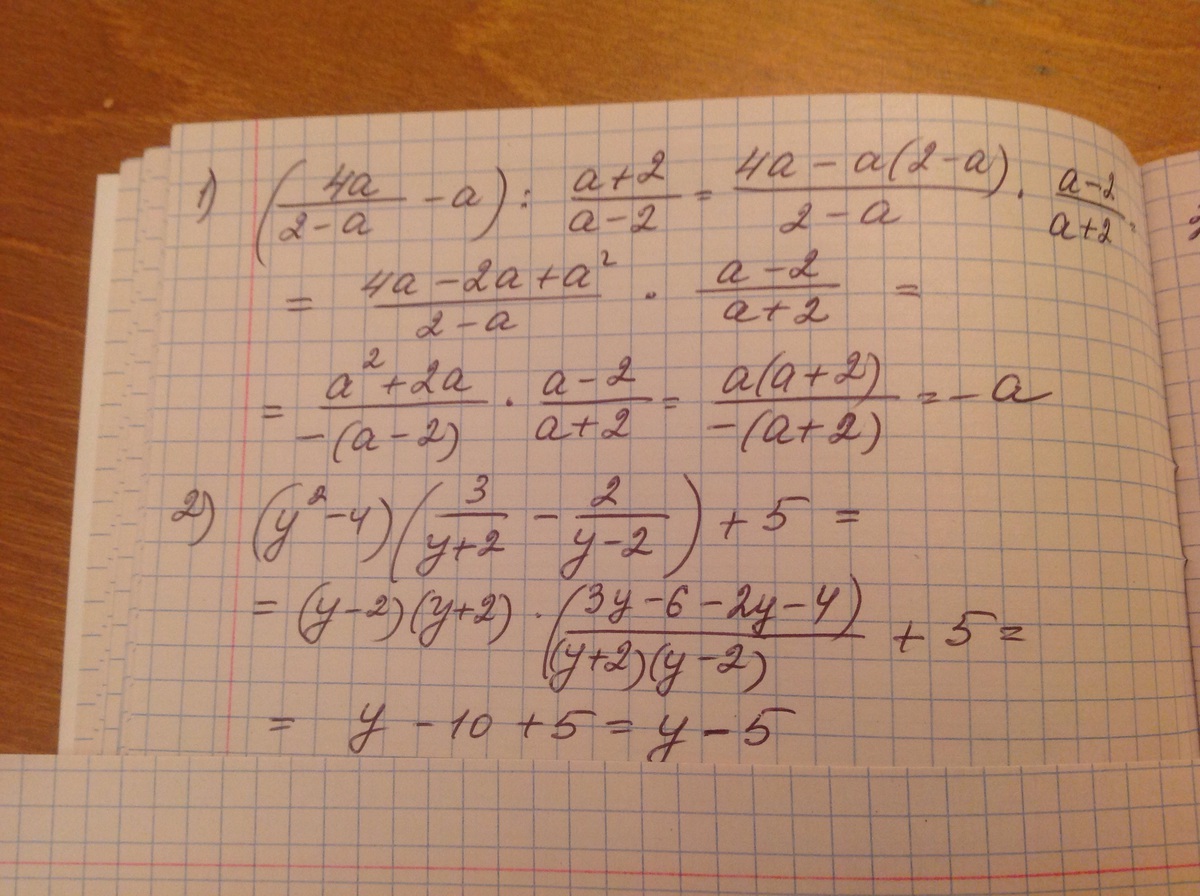 1) (4a/(2-a) - a) : (a+2)/(a-2) = (4a - a(2-a))/(2-a) · (a-2)/(a+2) =
= (4a - 2a + a²)/(2-a) · (a-2)/(a+2) =
= (a² + 2a)/(-(a-2)) · (a-2)/(a+2) = (a(a+2))/(-(a+2)) = -a
2) (y² - 4)(3/(y+2) - 2/(y-2)) + 5 =
= (y-2)(y+2) · ((3y - 6 - 2y - 4)/((y+2)(y-2))) + 5 =
= y - 10 + 5 = y - 5